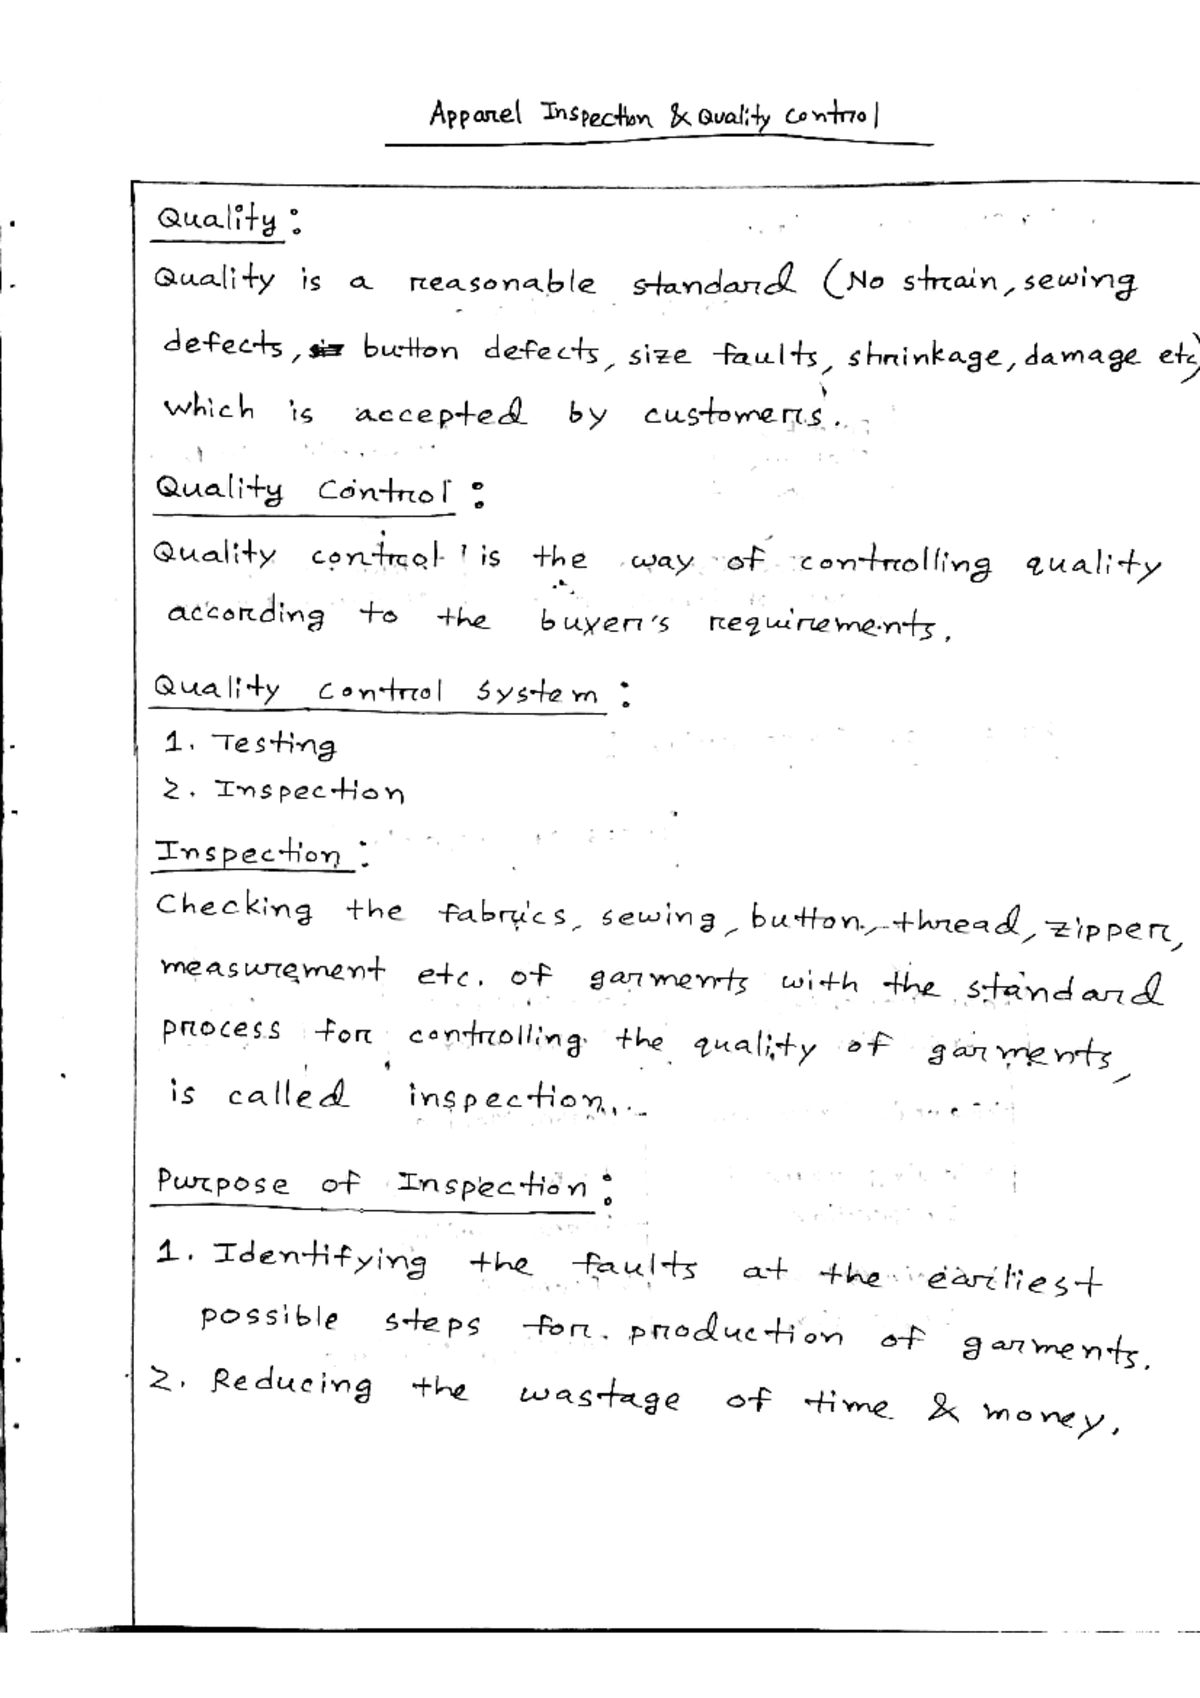 Apparel Inspection & Quality Control
Quality :
Quality is a reasonable standard (No strain, sewing
defects, button defects, size faults, shrinkage, damage etc)
which is accepted by customers.
Quality Control :
Quality control is the way of controlling quality
according to the buyer's requirements.
Quality control system :
1. Testing
2. Inspection
Inspection :
Checking the fabrics, sewing, button, thread, zipper,
measurement etc. of garments with the standard
process for controlling the quality of garments,
is called inspection.
Purpose of Inspection :
1. Identifying the faults at the earliest
possible steps for production of garments.
2. Reducing the wastage of time & money.